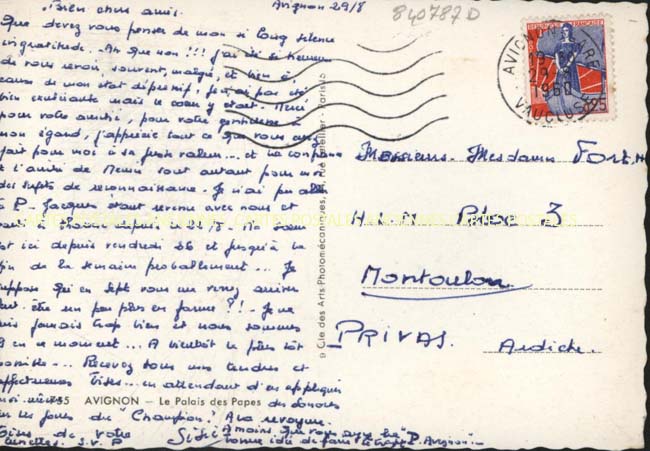 Bien chers amis. Avignon 29/8
Que devez vous penser de mon si long silence
ingratitude. Ah que non !!! j'ai été si heureuse
de vous revoir, souvent, malgré, et bien à
cause de mon état dépressif. Je n'ai pas été
bien exubérante mais le coeur y était. Merci
pour votre amitié, pour votre gentillesse à
mon égard, j'apprécie tout ce que vous avez
fait pour moi à sa juste valeur... et la confiance
et l'amitié de sont autant pour moi
des sujets de reconnaissance. Je n'ai pu aller
à P. Jacques étant revenu avec nous et
depuis le 22/8. Ma soeur
est ici depuis vendredi 26 et jusqu'à la
fin de la semaine probablement... Je
suppose qu'en Sept vous me verrez arriver
peut être un peu plus en forme ?!. Je ne
suis jamais trop bien et nous sommes
en ce moment... A bientôt le plus tôt
possible... Recevez tous mes tendres et
affectueuses bises... en attendant d'en appliquer
755 AVIGNON — Le Palais des Papes
sur les joues du "Champion"! A la revoyure.
de votre
S.V.P Sidi
A moins que vous ayez la
bonne idée de faire le trajet P. Avignon
9 Cie des Arts Photomécaniques,
840787D
REPUBLIQUE FRANCAISE
0,25
AVIGNON
1960
VAUCLUSE
CARTES POSTALES ANCIENNES
Messieurs. Mesdames Fort. H
H.L.M Bloc 3
Montoulon
PRIVAS.
Ardèche.